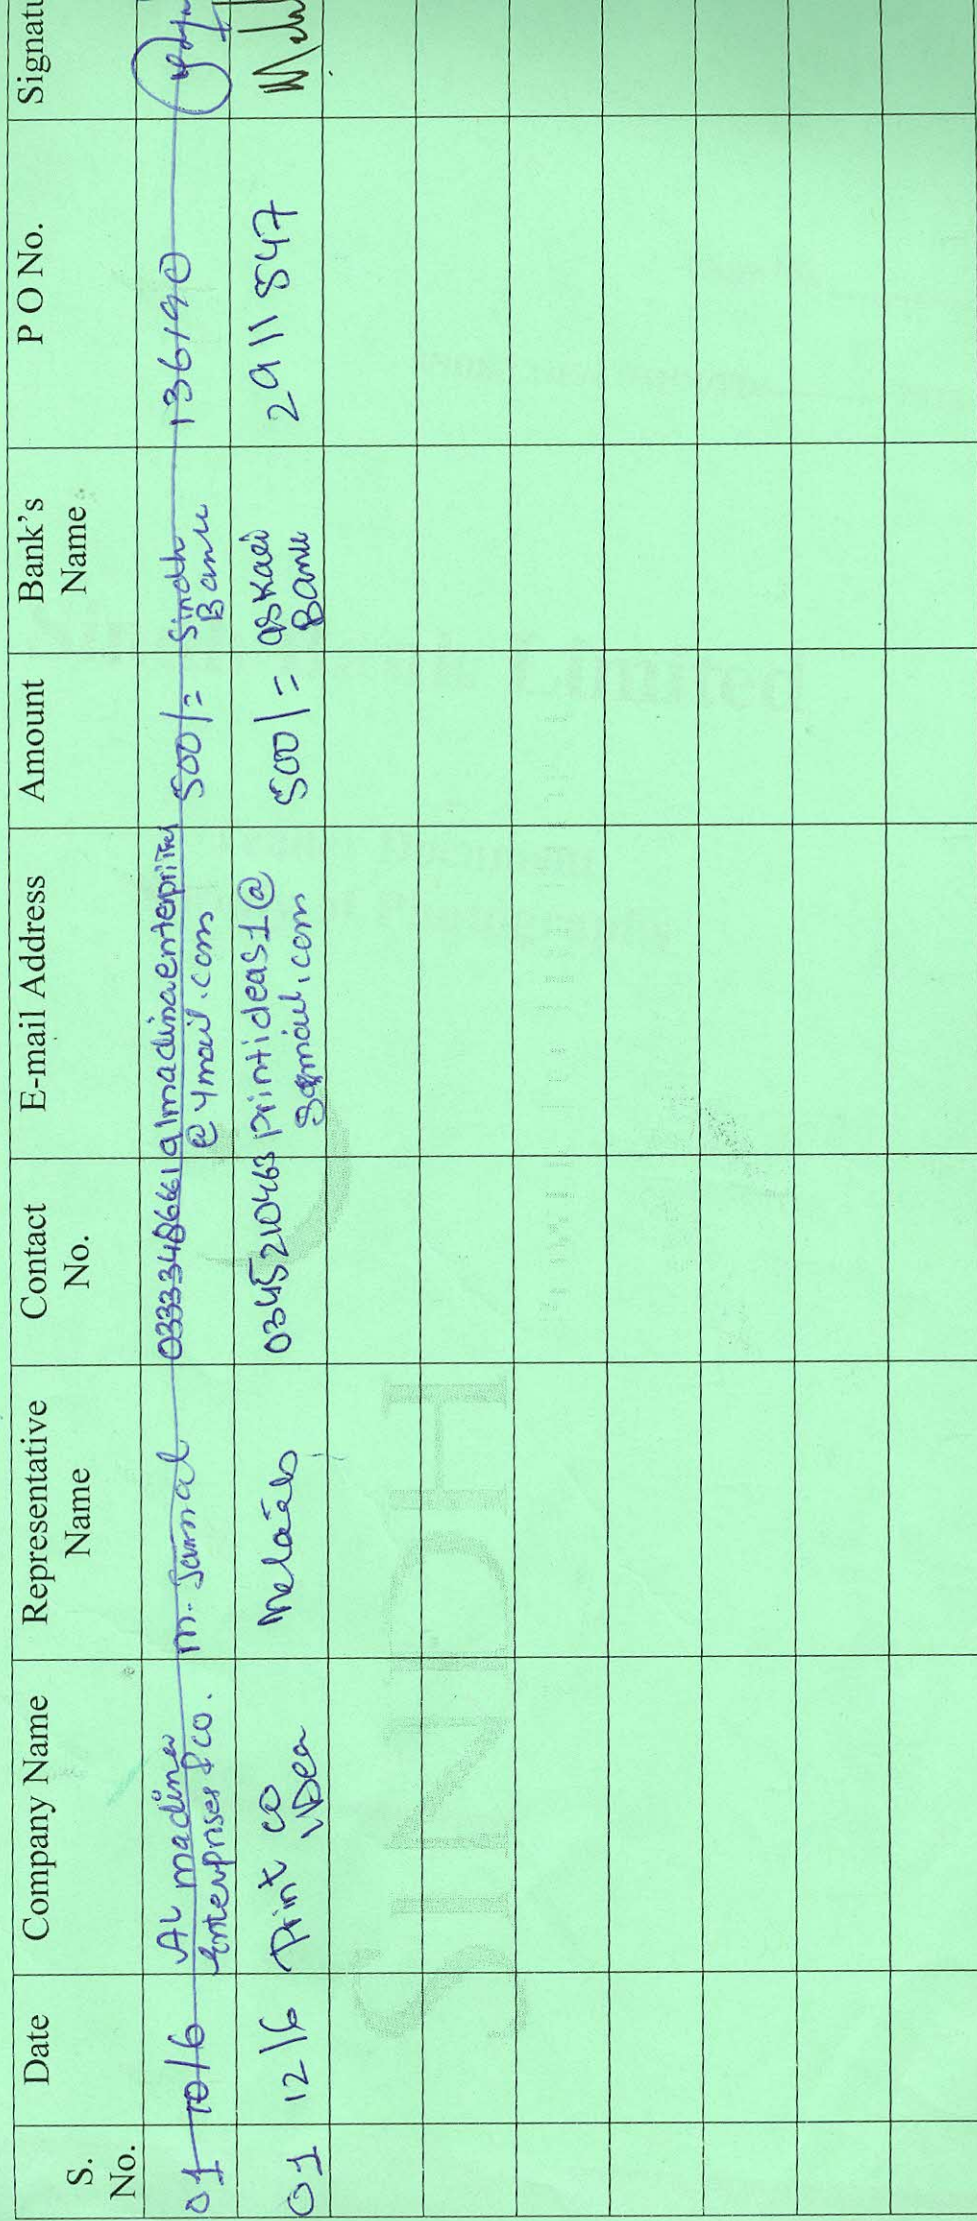 S. No. Date Company Name Representative Name Contact No. E-mail Address Amount Bank's Name P O No. Signatu
01 10/6 AL madina Enterprises & co. m. Jamal 03333486661 almadinaenterprises @ ymail.com 500/= Sindh Bank 136190
01 12/6 Print co IDea 03452210463 printideas1@ gmail.com 500/= askari Bank 2911547
SINDH